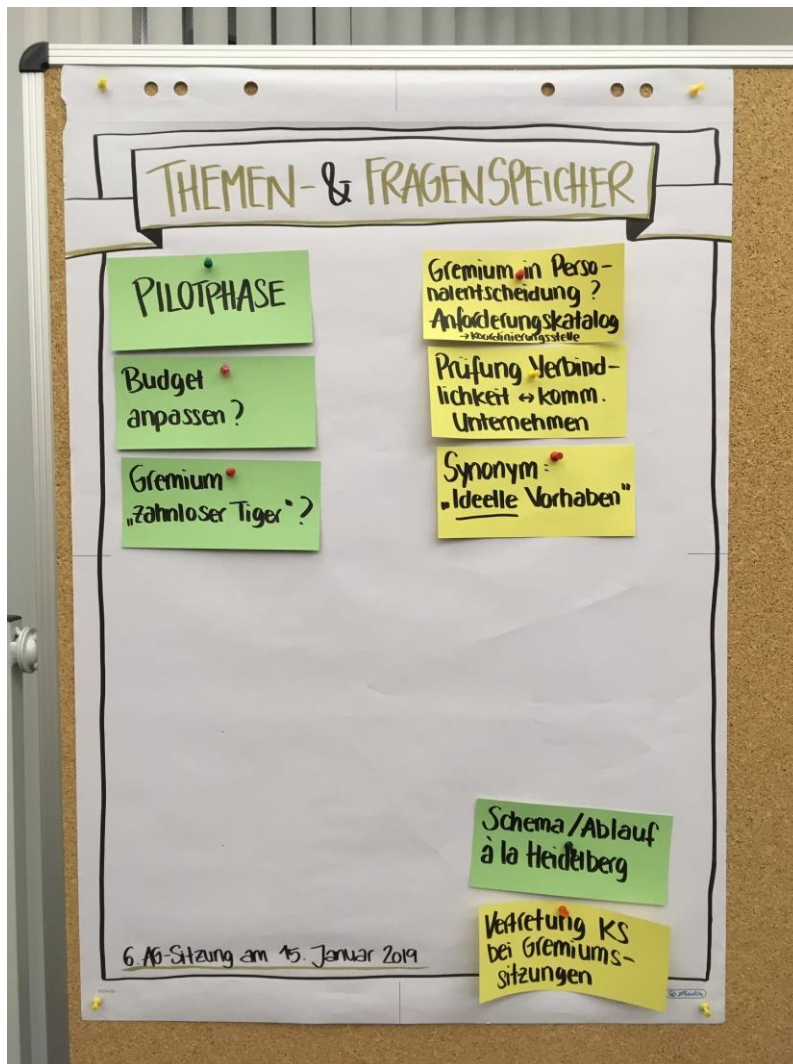 THEMEN- & FRAGENSPEICHER
PILOTPHASE
Budget
anpassen?
Gremium
„zahnloser Tiger"?
Gremium in Perso-
nalentscheidung?
Anforderungskatalog
→ Koordinierungsstelle
Prüfung Verbind-
lichkeit ↔ komm.
Unternehmen
Synonym:
„Ideelle Vorhaben"
Schema/Ablauf
à la Heidelberg
Vertretung KS
bei Gremiums-
sitzungen
6. AG-Sitzung am 15. Januar 2019